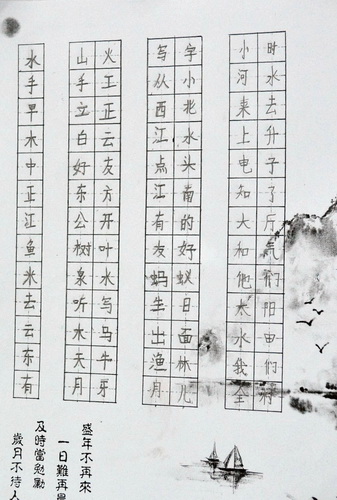 时水去升子了斤气们阳田们
小河来上电知大和他太水我全
字小北水头南的好蚁日面林儿
写从西江点江有友蚂生出渔月
火工正云友方开叶水写马牛牙
山手立白好东公树泉听木天月
水手早木中正江鱼米去云东有
盛年不再來
一日難再晨
及時當勉勵
歲月不待人